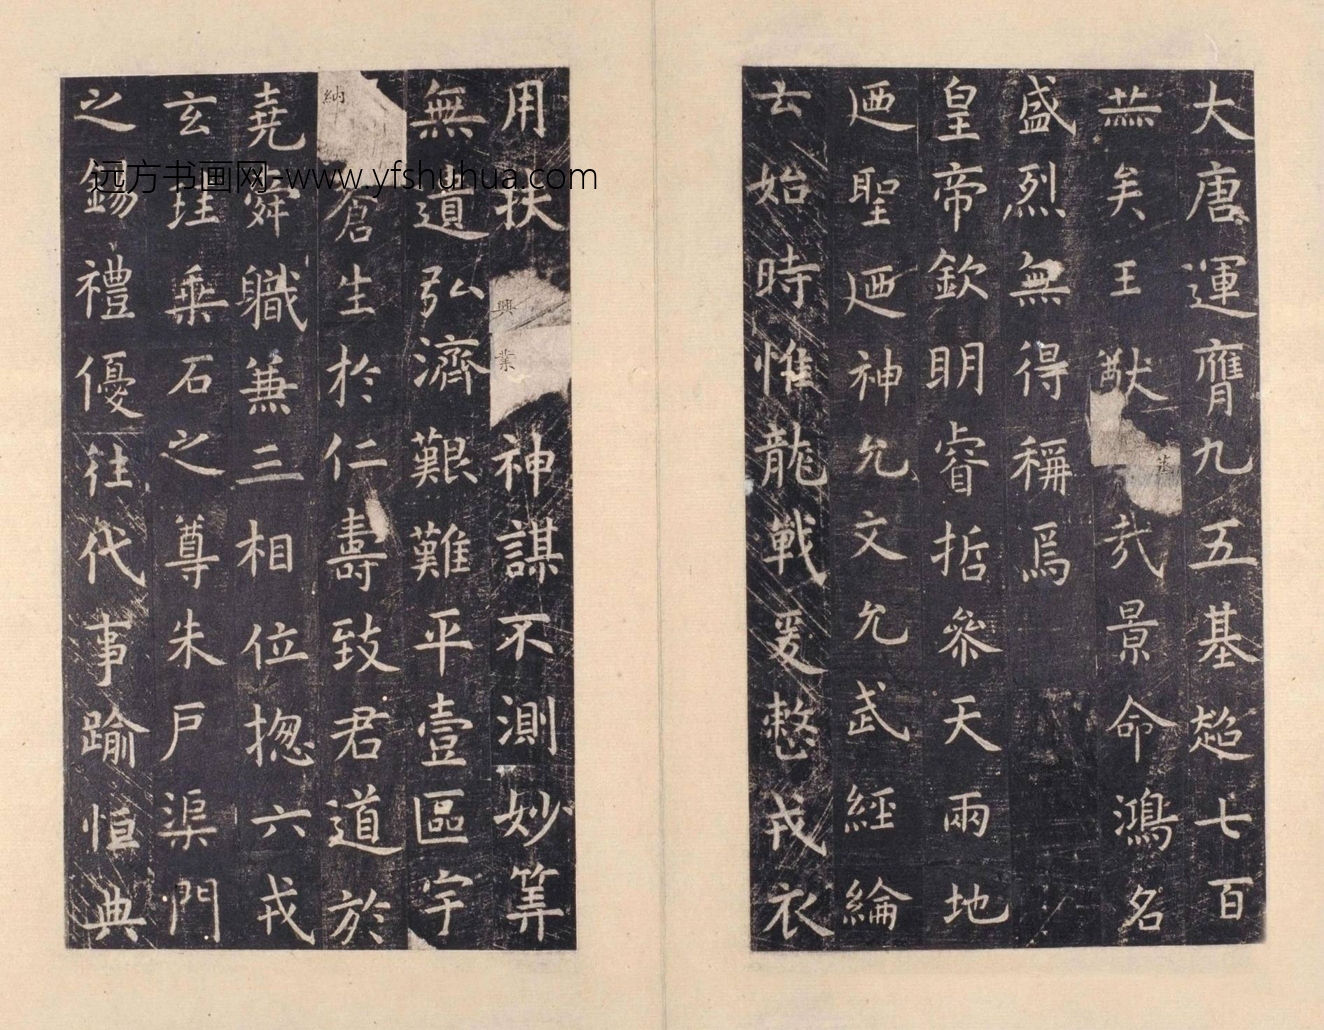 大唐運膺九五基超七百
赫矣王猷蒸哉景命鴻名
盛烈無得稱焉
皇帝欽明睿哲參天兩地
迺聖迺神允文允武經綸
云始時惟龍戰爰整戎衣
用扶興業神謀不測妙筭
無遺弘濟艱難平壹區宇
納蒼生於仁壽致君道於
堯舜職兼三相位揔六戎
玄珪乘石之尊朱戶渠門
之錫禮優往代事踰恒典
远方书画网-www.yfshuhua.com